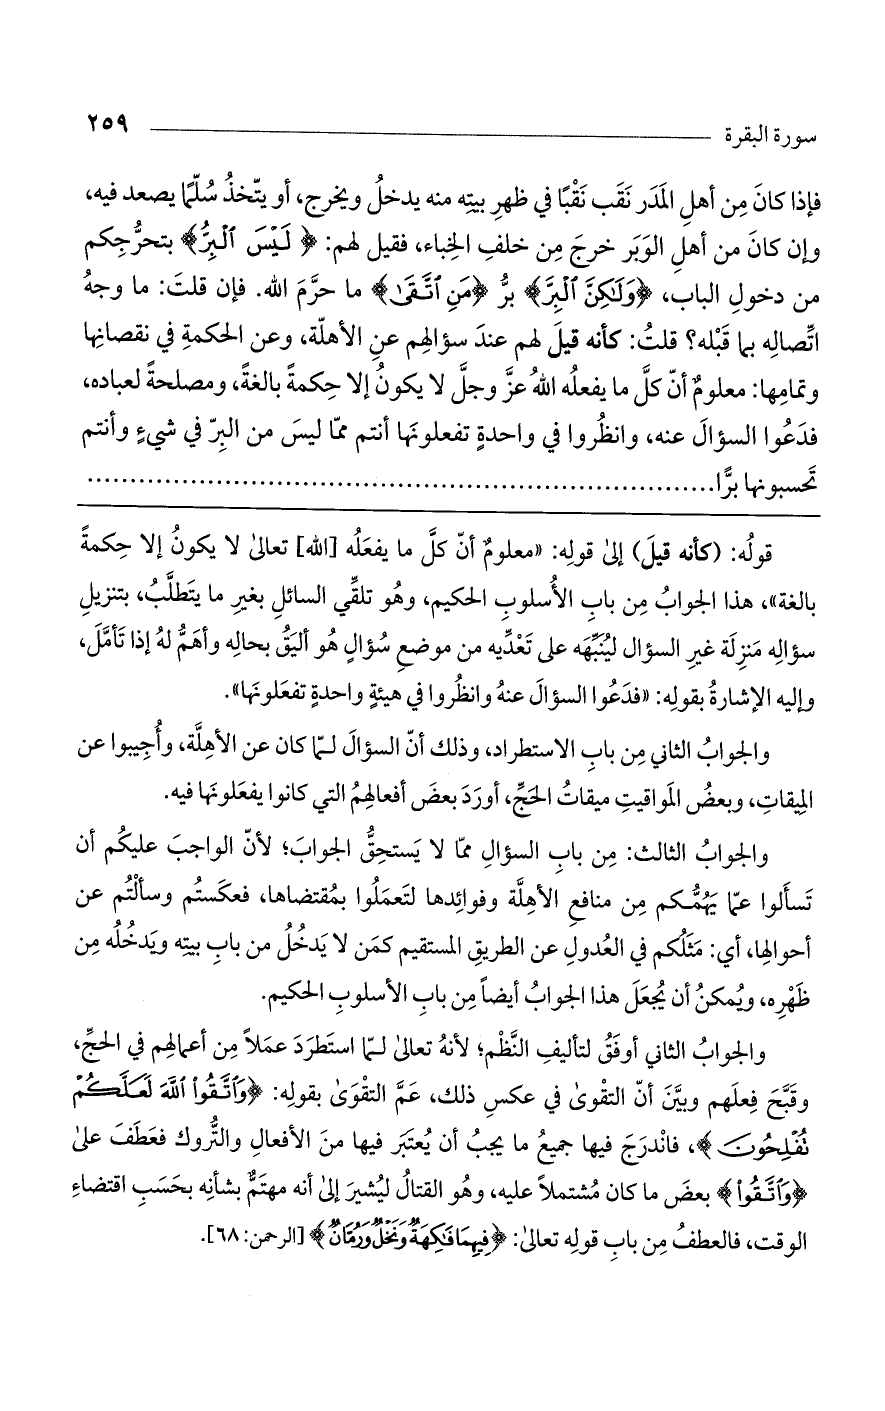 سورة البقرة ٢٥٩
فإذا كانَ مِن أهلِ المَدَر نَقَب نَقْبًا في ظهرِ بيتِه منه يدخلُ ويخرج، أو يتّخذُ سُلّمًا يصعد فيه،
وإن كانَ من أهلِ الوَبَر خرجَ مِن خلفِ الخِباء، فقيل لهم: ﴿لَيْسَ ٱلْبِرُّ﴾ بتحرُّجِكم
من دخولِ الباب، ﴿وَلَٰكِنَّ ٱلْبِرَّ﴾ برُّ ﴿مَنِ ٱتَّقَىٰ﴾ ما حرَّمَ الله. فإن قلتَ: ما وجهُ
اتِّصالِه بما قَبْله؟ قلتُ: كأنه قيلَ لهم عندَ سؤالهِم عنِ الأهلّة، وعن الحكمةِ في نقصانِها
وتمامِها: معلومٌ أنّ كلَّ ما يفعلُه اللهُ عزَّ وجلَّ لا يكونُ إلا حِكمةً بالغةً، ومصلحةً لعباده،
فدَعُوا السؤالَ عنه، وانظُروا في واحدةٍ تفعلونَها أنتم ممّا ليسَ من البرّ في شيءٍ وأنتم
تَحسبونها برًّا.....................................................................
قولُه: (كأنه قيلَ) إلىٰ قولِه: «معلومٌ أنّ كلَّ ما يفعَلُه [الله] تعالىٰ لا يكونُ إلا حِكمةً
بالغة»، هذا الجوابُ مِن بابِ الأُسلوبِ الحكيم، وهُو تلقِّي السائلِ بغيرِ ما يَتطلَّبُ، بتنزيلِ
سؤالِه مَنزِلَة غيرِ السؤال ليُنَبِّهَه على تَعْدِّيه من موضعِ سُؤالٍ هُو أليَقُ بحالِه وأهَمُّ لهُ إذا تَأمَّلَ،
وإليه الإشارةُ بقولِه: «فدَعُوا السؤالَ عنهُ وانظُروا في هيئةٍ واحدةٍ تفعَلونَها».
والجوابُ الثاني مِن بابِ الاستطراد، وذلك أنّ السؤالَ لـمّا كان عن الأهِلَّة، وأُجِيبوا عن
المِيقاتِ، وبعضُ المَواقيتِ ميقاتُ الحَجِّ، أورَدَ بعضَ أفعالهِمُ التي كانوا يفعَلونَها فيه.
والجوابُ الثالث: مِن بابِ السؤالِ ممّا لا يَستحِقُّ الجوابَ؛ لأنّ الواجبَ عليكُم أن
تَسألوا عمّا يَهُمُّكم مِن منافعِ الأهِلَّة وفوائِدها لتَعمَلُوا بمُقتضاها، فعكَستُم وسألْتُم عن
أحوالِها، أي: مَثَلُكم في العُدولِ عن الطريقِ المستقيم كمَن لا يَدخُلُ من بابِ بيتِه ويَدخُلُه مِن
ظَهْرِه، ويُمكنُ أن يُجعَلَ هذا الجوابُ أيضاً مِن بابِ الأسلوبِ الحكيم.
والجوابُ الثاني أوفَقُ لتأليفِ النَّظْم؛ لأنهُ تعالىٰ لـمّا استَطرَدَ عمَلاً مِن أعمالِهم في الحجِّ،
وقَبَّحَ فِعلَهم وبيَّنَ أنّ التقوىٰ في عكسِ ذلك، عَمَّ التقْوَىٰ بقولِه: ﴿وَٱتَّقُوا۟ ٱللَّهَ لَعَلَّكُمْ
تُفْلِحُونَ﴾، فانْدرَجَ فيها جميعُ ما يجبُ أن يُعتَبَر فيها منَ الأفعالِ والتُّروك فعَطَفَ علىٰ
﴿وَٱتَّقُوا۟﴾ بعضَ ما كان مُشتملاً عليه، وهُو القتالُ ليُشيرَ إلىٰ أنه مهتَمٌّ بشأنِه بحَسَبِ اقتضاءِ
الوقت، فالعطفُ مِن بابِ قولِه تعالىٰ: ﴿فِيهِمَا فَٰكِهَةٌ وَنَخْلٌ وَرُمَّانٌ﴾ [الرحمن: ٦٨].